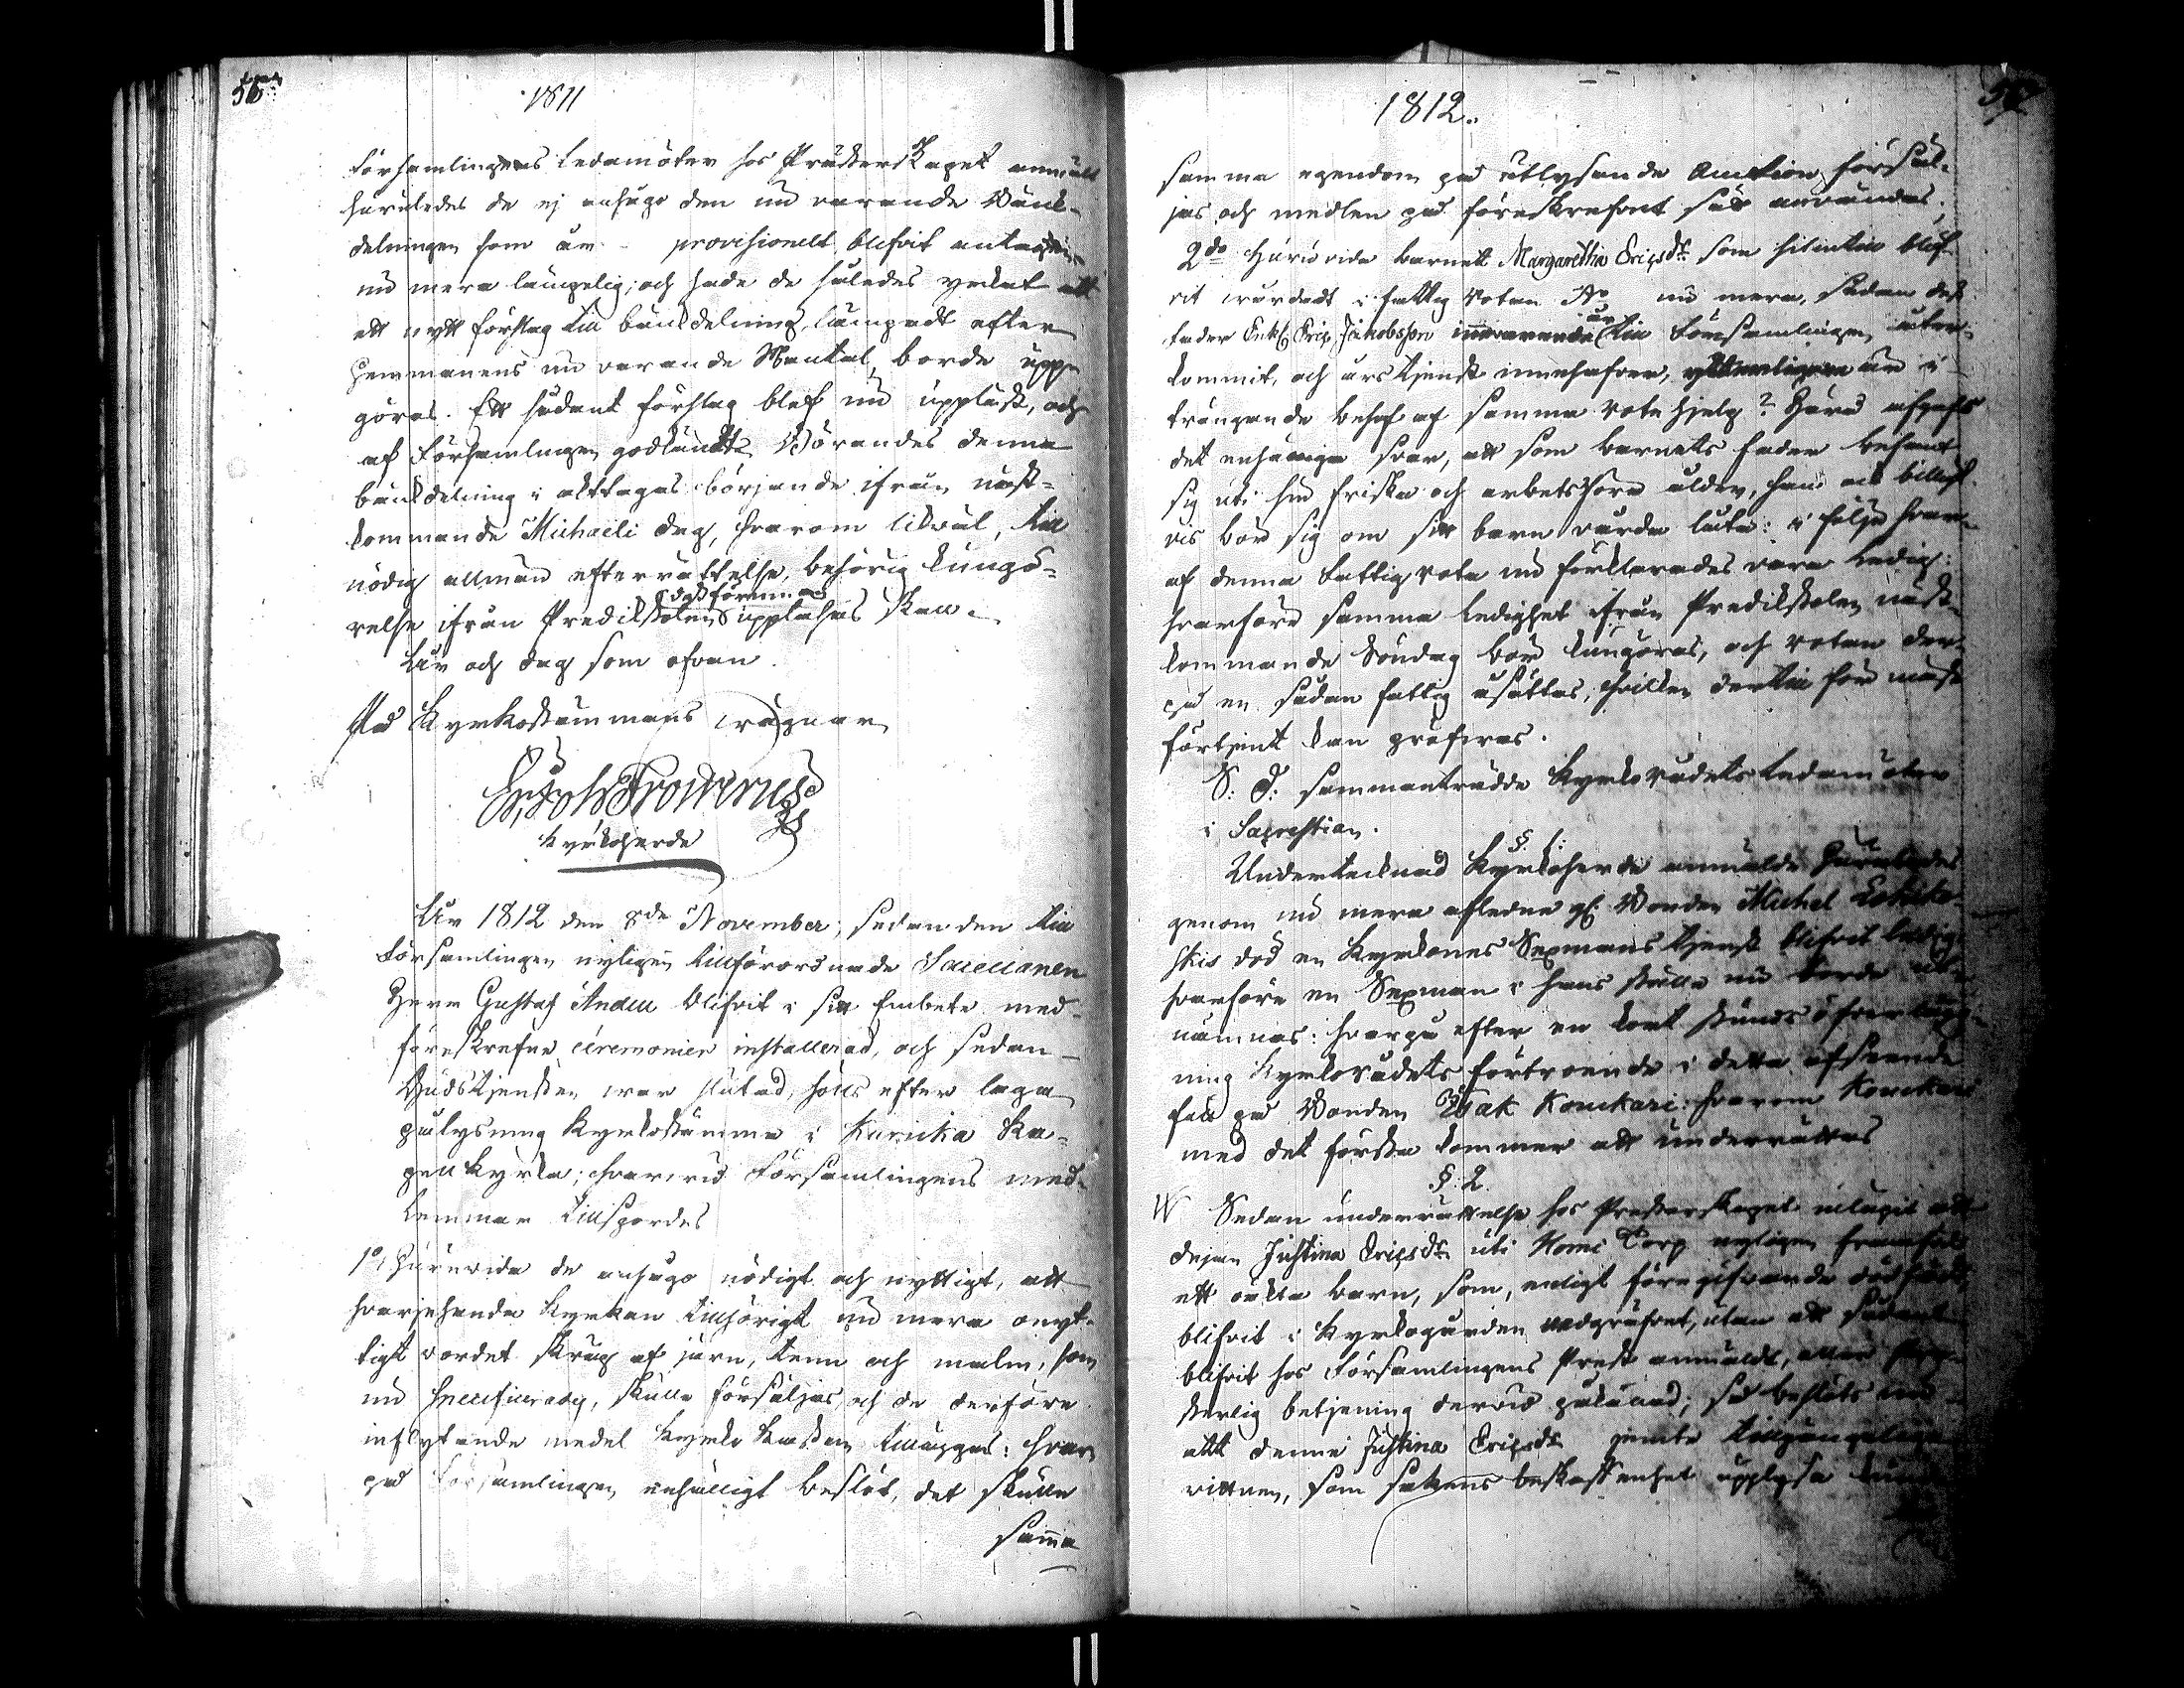 56
1811
Församlingens Ledamöter hos Prästerskapet anmält
huruledes de ej ansågo den nu varande Bänk-
delningen som är provisionelt blifvit antagen
nu mera lämpelig; och hade de således yrkat att
ett nytt förslag till bänkdelning lämpadt efter
Hemmanens nu varande Mantal, borde upp-
göras. Ett sådant förslag blef nu uppläst, och
af Församlingen godkändt. Börandes denna
bänkdelning i akttagas började ifrån näst-
kommande Michaeli dag, hvarom likväl, till
nödig allmän efterrättelse, behörig kungö-
relse ifrån Predikstolen dessförinnan uppläsas skall.
År och dag som ofvan.
På Kyrkostämmans vägnar
Kyrkoherde
År 1812 den 8de November, sedan den till
Församlingen nyligen tillförordnade Capellanen
Herr Gustaf Andell blifvit i sitt Embete med
föreskrefne ceremonier installerad, och sedan
Gudstjensten war slutad, hölls efter laga
pålysning Kyrkostämma i Karuka Ka-
pell kyrka; hvarvid Församlingens med-
lemmar tillspordes
1o Huruvida de ansågo nödigt och nyttigt, att
hvarjehanda Kyrkan tillhörigt nu mera onyt-
tigt vordet skrap af järn, tenn och malm, som
nu specificerades, skulle försäljas, och de derföre
inflytande medel Kyrko Kassan tilläggas: hvar-
på Församlingen enhälligt beslöt, det skulle
samma
57
1812.
samma egendom på utlysande Auction försäl-
jas och medlen på föreskrefvet sätt användas.
2do Huruvida barnet Margaretha Ericsdr som hitintils blif-
vit vårdadt i fattig Rotan No nu mera, sedan dess
fader Enkl. Eric Jakobsson till Församlingen åter-
kommit, och årstjenst innehafver, är i
trängande behof af samma rote hjelp? Härå afgafs
det enhälliga svar, att som barnets fader befant
sig uti sin friska och arbetsföra ålder, han ock billigt-
vis bör sig om sitt barn vårda låta: i följe hvar-
af denna Fattig rota nu förklarades vara ledig:
hvarföre samma ledighet ifrån Predikstolen näst-
kommande Söndag bör kungöras, och rotan der-
på en sådan fattig ansättas, hvilken dertill för mäst
förtjent kan pröfvas.
S. D. sammanträdde Kyrkorådets Ledamöter
i Sacristian.
§. 1:
Undertecknad Kyrkoherde anmälde huruledes
genom nu mera aflidne gl. Bonden Michel
skis död en Kyrkones Sexmans tjenst blifvit ledig
hvarföre en Sexman i hans ställe nu borde ut-
nämnas: hvarpå efter en kort stunds öfverlägg-
ning Kyrkorådets förtroende i detta afseende
föll på Bonden Isak Konckari: hvarom Konckari
med det första kommer att underrättas
§. 2.
Sedan underrättelse hos Presterskapet inlupit att
Pigan Justina Ericsdr uti Homi Torp nyligen framfödt
ett oäkta barn, som, enligt föregifvande dödfödt,
blifvit i Kyrkogården nedgräfvet, utan att sådant
blifvit hos Församlingens Prest anmäldt, eller Pre-
sterlig betjening dervid påkallad; så beslöts
att denne Justina Ericsdr jemte tillgängeliga
vittnen, som sakens beskaffenhet upplysa kunna